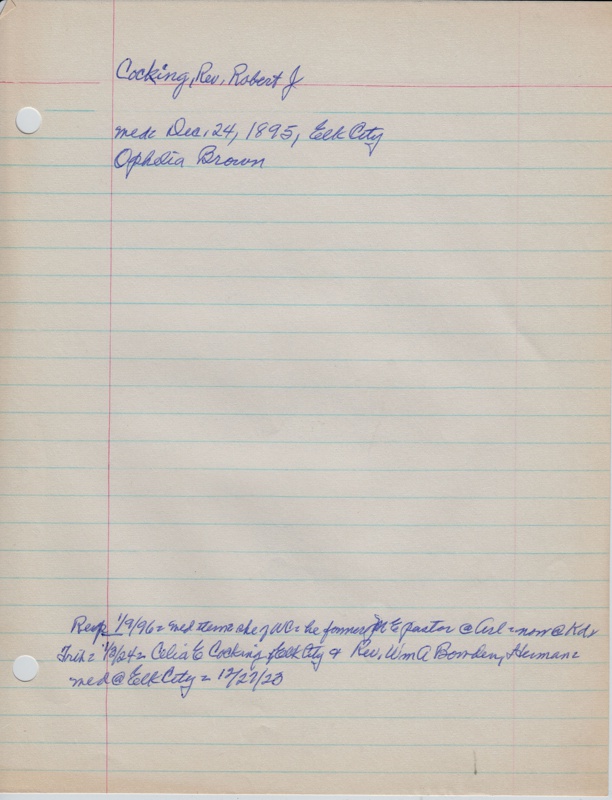 Cocking, Rev. Robert J
Dec. 24, 1895, Elk City
Ophelia Brown
Rep 1/9/96 = item she of WC = he former M E pastor @ Arl = now @
Trib = 1/3/24 = Celia E Cocking of Elk City & Rev, Wm A Bowden, Herman =
@ Elk City = 12/27/23